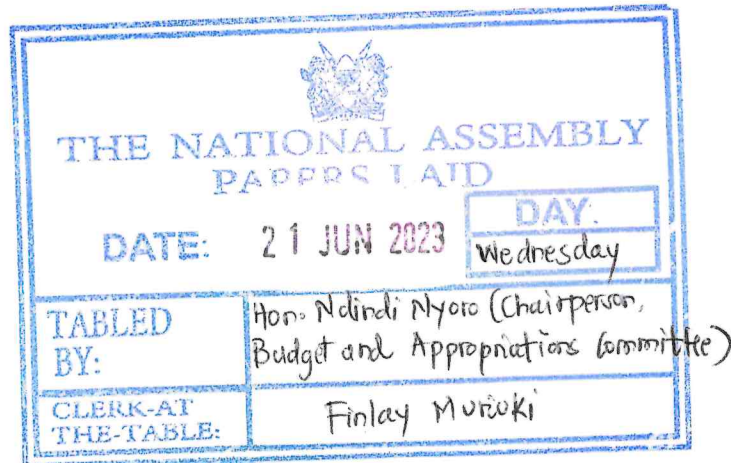 THE NATIONAL ASSEMBLY
PAPERS LAID
DATE: 21 JUN 2023
DAY:
Wednesday
TABLED BY:
Hon. Ndindi Nyoro (Chairperson,
Budget and Appropriations Committee)
CLERK-AT
THE-TABLE:
Finlay Muriuki